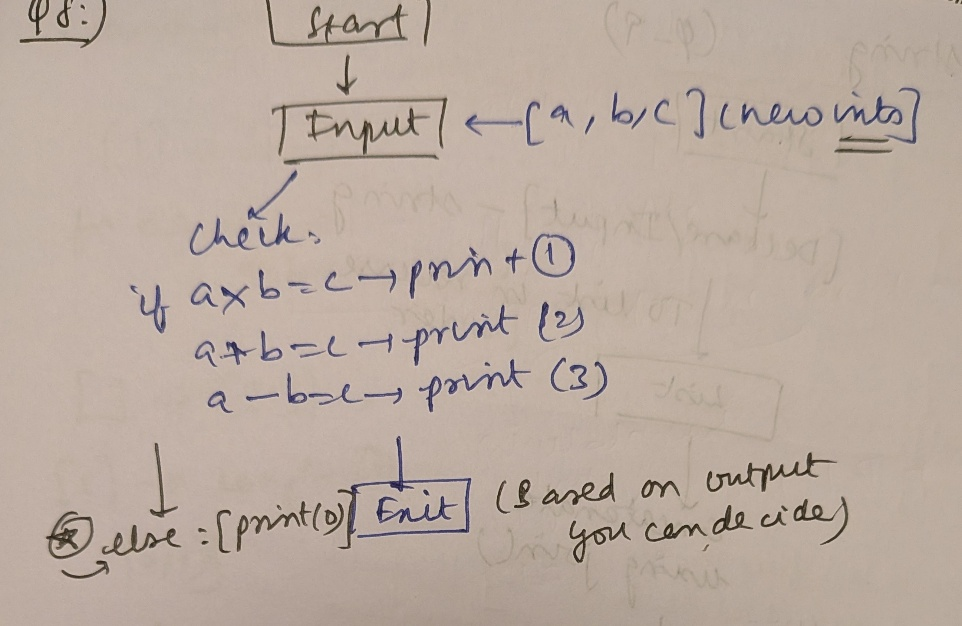 Q8:)
Start
Input ← [a, b, c] (new ints]
Check:
if a×b=c → print ①
a+b=c → print (2)
a-b=c → print (3)
else : [print(0)] Exit (Based on output
you can decide)